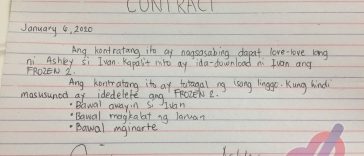 CONTRACT
January 6, 2020
Ang kontratang ito ay nagsasabing dapat love-love lang
ni Ashley si Ivan. Kapalit nito ay ida-download ni Ivan ang
FROZEN 2.
Ang kontratang ito ay tatagal ng isang linggo. Kung hindi
masusunod ay idedelete ang FROZEN 2.
• Bawal awayin si Ivan
• Bawal magkalat ng larvan
• Bawal mginarte